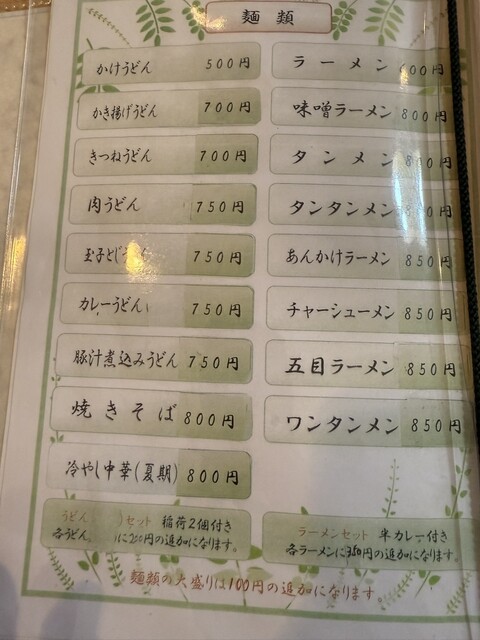 麺類
かけうどん 500円
かき揚げうどん 700円
きつねうどん 700円
肉うどん 750円
玉子とじ 750円
カレーうどん 750円
豚汁煮込みうどん 750円
焼きそば 800円
冷やし中華(夏期) 800円
うどん セット 稲荷2個付き
各うどん に200円の追加になります。
ラーメン 600円
味噌ラーメン 800円
タンメン 円
タンタンメン 円
あんかけラーメン 850円
チャーシューメン 850円
五目ラーメン 850円
ワンタンメン 850円
ラーメンセット 半カレー付き
各ラーメンに350円の追加になります。
麺類の大盛りは100円の追加になります